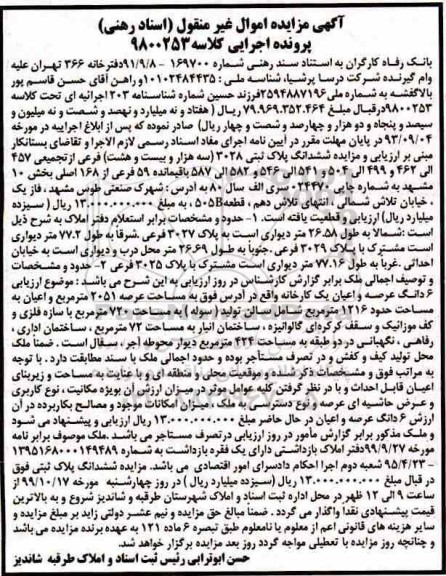 آگهی مزایده اموال غیر منقول (اسناد رهنی)
پرونده اجرایی کلاسه ۹۸۰۰۲۵۳
بانک رفاه کارگران به استناد سند رهنی شماره ۱۶۹۷۰۰ - ۹۱/۹/۸دفترخانه ۳۶۶ تهران علیه
وام گیرنده شرکت درسا پرشیا، شناسه ملی : ۱۰۱۰۲۴۸۴۴۳۵وراهن آقای حسن قاسم پور
بالاگفشه به شماره ملی۲۵۹۴۸۸۷۱۹۶فرزند حسین شماره شناسنامه ۲۰۳ اجرائیه ای تحت کلاسه
۹۸۰۰۲۵۳درقبال مبلغ ۷۹.۹۶۹.۳۵۲.۴۶۴ ریال ( هفتاد و نه میلیارد و نهصد و شصت و نه میلیون و
سیصد و پنجاه و دو هزار و چهارصد و شصت و چهار ریال) صادر نموده که پس از ابلاغ اجراییه در مورخه
۹۳/۰۹/۰۴ در پایان مهلت مقرر در آیین نامه اجرای مفاد اسناد رسمی لازم الاجرا و تقاضای بستانکار
مبنی بر ارزیابی و مزایده ششدانگ پلاک ثبتی ۳۰۲۸ (سه هزار و بیست و هشت) فرعی ازتجمیعی ۴۵۷
الی ۴۶۲ و ۴۹۹ الی ۵۰۴ و ۵۴۱ الی ۵۴۶ و ۵۸۲ الی ۵۸۷ باقیمانده ۵۹ فرعی از ۱۶۸ اصلی بخش ۱۰
مشهد به شماره چاپی ۰۲۴۴۷۰سری الف سال ۸۰ به آدرس : شهرک صنعتی طوس مشهد ، فاز یک
، خیابان تلاش شمالی ، انتهای تلاش دهم ، قطعه۵۰۵B ، به مبلغ ۱۳.۰۰۰.۰۰۰.۰۰۰ ریال ( سیزده
میلیارد ریال) ارزیابی و قطعیت یافته است. ۱- حدود و مشخصات برابر استعلام دفتر املاک به شرح ذیل
است :شمالا به طول ۲۶.۵۸ متر دیواری است به پلاک ۳۰۲۷ فرعی .شرقا به طول ۷۷.۲ متر دیواری
است مشترک با پلاک ۳۰۲۹ فرعی .جنوبا به طول ۲۶.۶۹ متر محل درب و دیواری است به خیابان
احداثی .غربا به طول ۷۷.۱۶ متر دیواری است مشترک با پلاک ۳۰۲۵ فرعی ۲- حدود و مشخصات
و توصیف اجمالی ملک برابر گزارش کارشناس در روز ارزیابی به این شرح می باشد : موضوع ارزیابی
۶ دانگ عرصه و اعیان یک کارخانه واقع در آدرس فوق به مساحت عرصه ۲۰۵۱ مترمربع و اعیان به
مساحت حدود ۱۲۱۶ مترمربع شامل سالن تولید (سوله ) به مساحت ۷۲۰مترمربع با سازه فلزی و
کف موزائیک و سقف کرکره‌ای گالوانیزه ، ساختمان انبار به مساحت ۷۲ مترمربع ، ساختمان اداری ،
رفاهی ، نگهبانی در دو طبقه به مساحت ۴۲۴ مترمربع دیوار محوطه آجر ، سفال است . ضمنا ملک
محل تولید کیف و کفش و در تصرف مستأجر بوده و حدود اجمالی ملک با سند مطابقت دارد . با توجه
به مراتب فوق و مشخصات ذکر شده و موقعیت محلی و منطقه ای و با عنایت به مساحت و زیربنای
اعیان قابل احداث و با در نظر گرفتن کلیه عوامل موثر در میزان ارزش آن بویژه مکانیت ، نوع کاربری
و عرض حاشیه ای عرصه و نوع دسترسی به ملک ، میزان امکانات موجود و مصالح بکاربرده در آن
ارزش ۶ دانگ عرصه و اعیان در حال حاضر مبلغ ۱۳.۰۰۰.۰۰۰.۰۰۰ ریال ارزیابی و پیشنهاد می شود
و ملک مذکور برابر گزارش مأمور در روز ارزیابی درتصرف مستاجر می باشد .ملک موصوف برابر نامه
مورخه ۹۹/۹/۲۷دفتر املاک بازداشتی دارای یک فقره بازداشت به شماره ۱۳۹۵۱۶۸۰۰۰۱۴۹۴۸۹
- ۹۵/۴/۲۳ شعبه دوم اجرا احکام دادسرای امور اقتصادی می باشد. مزایده ششدانگ پلاک ثبتی فوق
در قبال مبلغ ۱۳.۰۰۰.۰۰۰.۰۰۰ ریال (سیزده میلیارد ریال ) در روز چهارشنبه مورخه ۹۹/۱۰/۱۷ از
ساعت ۹ الی ۱۲ ظهر در محل اداره ثبت اسناد و املاک شهرستان طرقبه و شاندیز شروع و به بالاترین
قیمت پیشنهادی نقدا واگذار می گردد . ضمنا مبالغ حق مزایده و نیم عشر دولتی زاید بر مبلغ مزایده و
سایر هزینه های قانونی اعم از معلوم یا نامعلوم طبق تبصره ۶ ماده ۱۲۱ به عهده برنده مزایده می باشد
و چنانچه روز مزایده با تعطیلی مواجه گردد روز بعد مزایده برگزار خواهد شد.
حسن ابوترابی رئیس ثبت اسناد و املاک طرقبه شاندیز